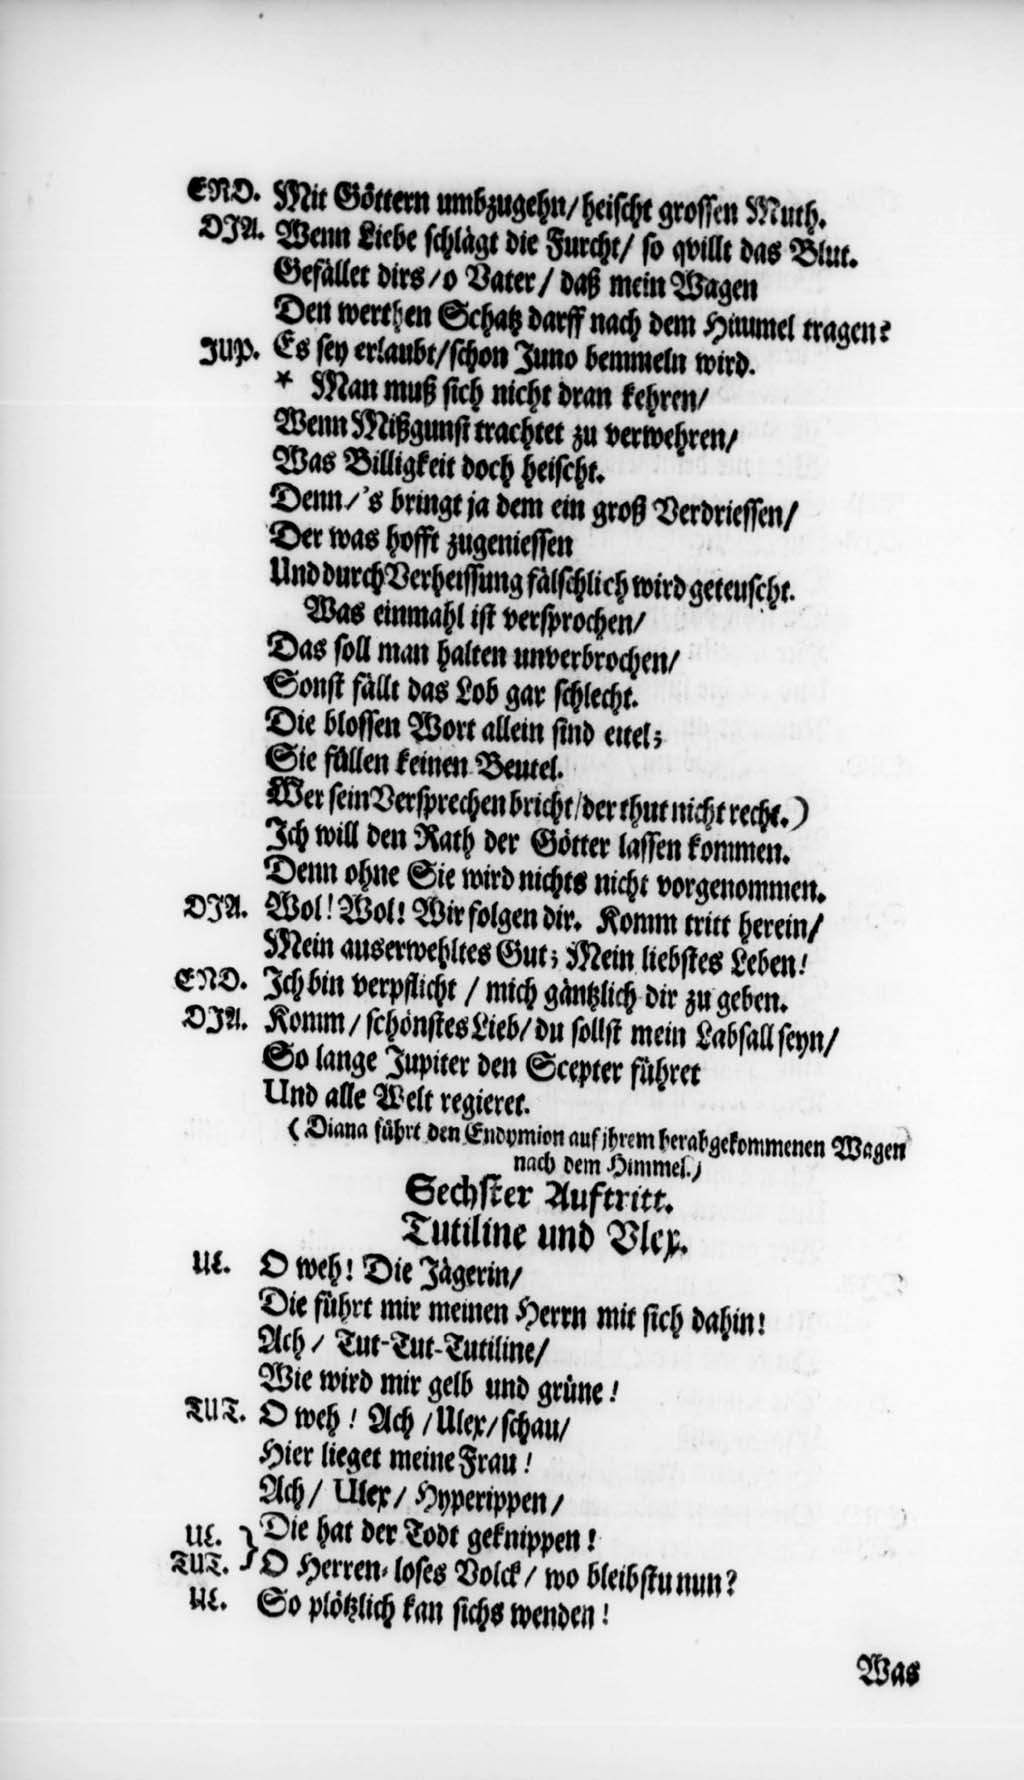 END. Mit Göttern umbzugehn/ heischt grossen Muth.
DIA. Wenn Liebe schlägt die Furcht/ so qvillt das Blut.
Gefället dirs/ o Vater/ daß mein Wagen
Den werthen Schatz darff nach dem Himmel tragen?
JUP. Es sey erlaubt/ schon Juno bemmeln wird.
* Man muß sich nicht dran kehren/
Wenn Mißgunst trachtet zu verwehren/
Was Billigkeit doch heischt.
Denn/ 's bringt ja dem ein groß Verdriessen/
Der was hofft zugeniessen
Und durch Verheissung fälschlich wird geteuscht.
Was einmahl ist versprochen/
Das soll man halten unverbrochen/
Sonst fällt das Lob gar schlecht.
Die blossen Wort allein sind eitel;
Sie füllen keinen Beutel.
Wer sein Versprechen bricht/ der thut nicht recht.)
Ich will den Rath der Götter lassen kommen.
Denn ohne Sie wird nichts nicht vorgenommen.
DIA. Wol! Wol! Wir folgen dir. Komm tritt herein/
Mein auserwehltes Gut; Mein liebstes Leben!
END. Ich bin verpflicht / mich gäntzlich dir zu geben.
DIA. Komm/ schönstes Lieb/ du sollst mein Labsall seyn/
So lange Jupiter den Scepter führet
Und alle Welt regieret.
( Diana führt den Endymion auf ihrem herabgekommenen Wagen
nach dem Himmel.)
Sechster Auftritt.
Tutiline und Vlex.
UL. O weh! Die Jägerin/
Die führt mir meinen Herrn mit sich dahin!
Ach / Tut-Tut-Tutiline/
Wie wird mir gelb und grüne!
TUT. O weh! Ach /Ulex/ schau/
Hier lieget meine Frau!
Ach/ Ulex/ Hyperippen/
Die hat der Todt geknippen!
UL. TUT. } O Herren-loses Volck/ wo bleibstu nun?
UL. So plötzlich kan sichs wenden!
Was